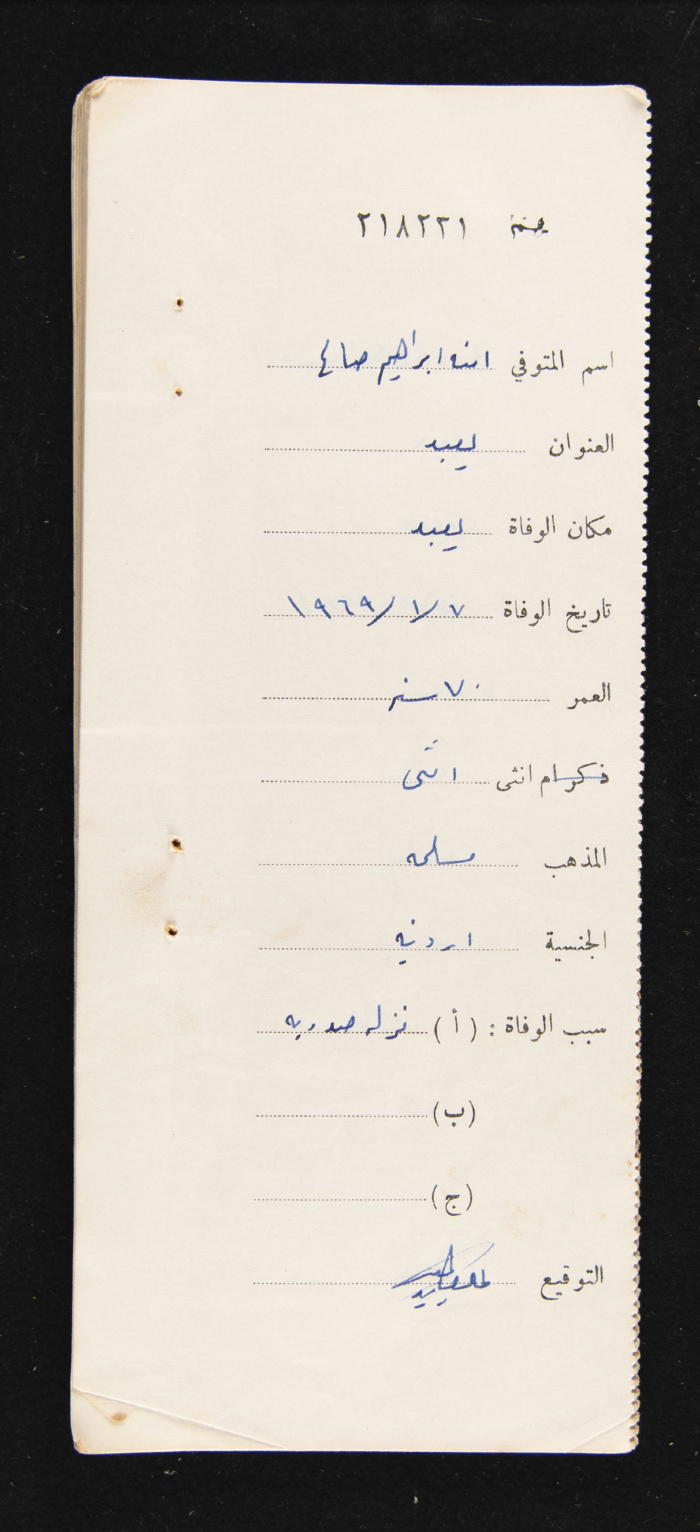 ٢١٨٢٢١
اسم المتوفي امنه ابراهيم صالح
العنوان يعبد
مكان الوفاة يعبد
تاريخ الوفاة ٧/١/١٩٦٩
العمر ٧٠ سنه
ذكر ام انثى انثى
المذهب مسلمه
الجنسية اردنيه
سبب الوفاة : (أ) نزله صدريه
(ب)
(ج)
التوقيع